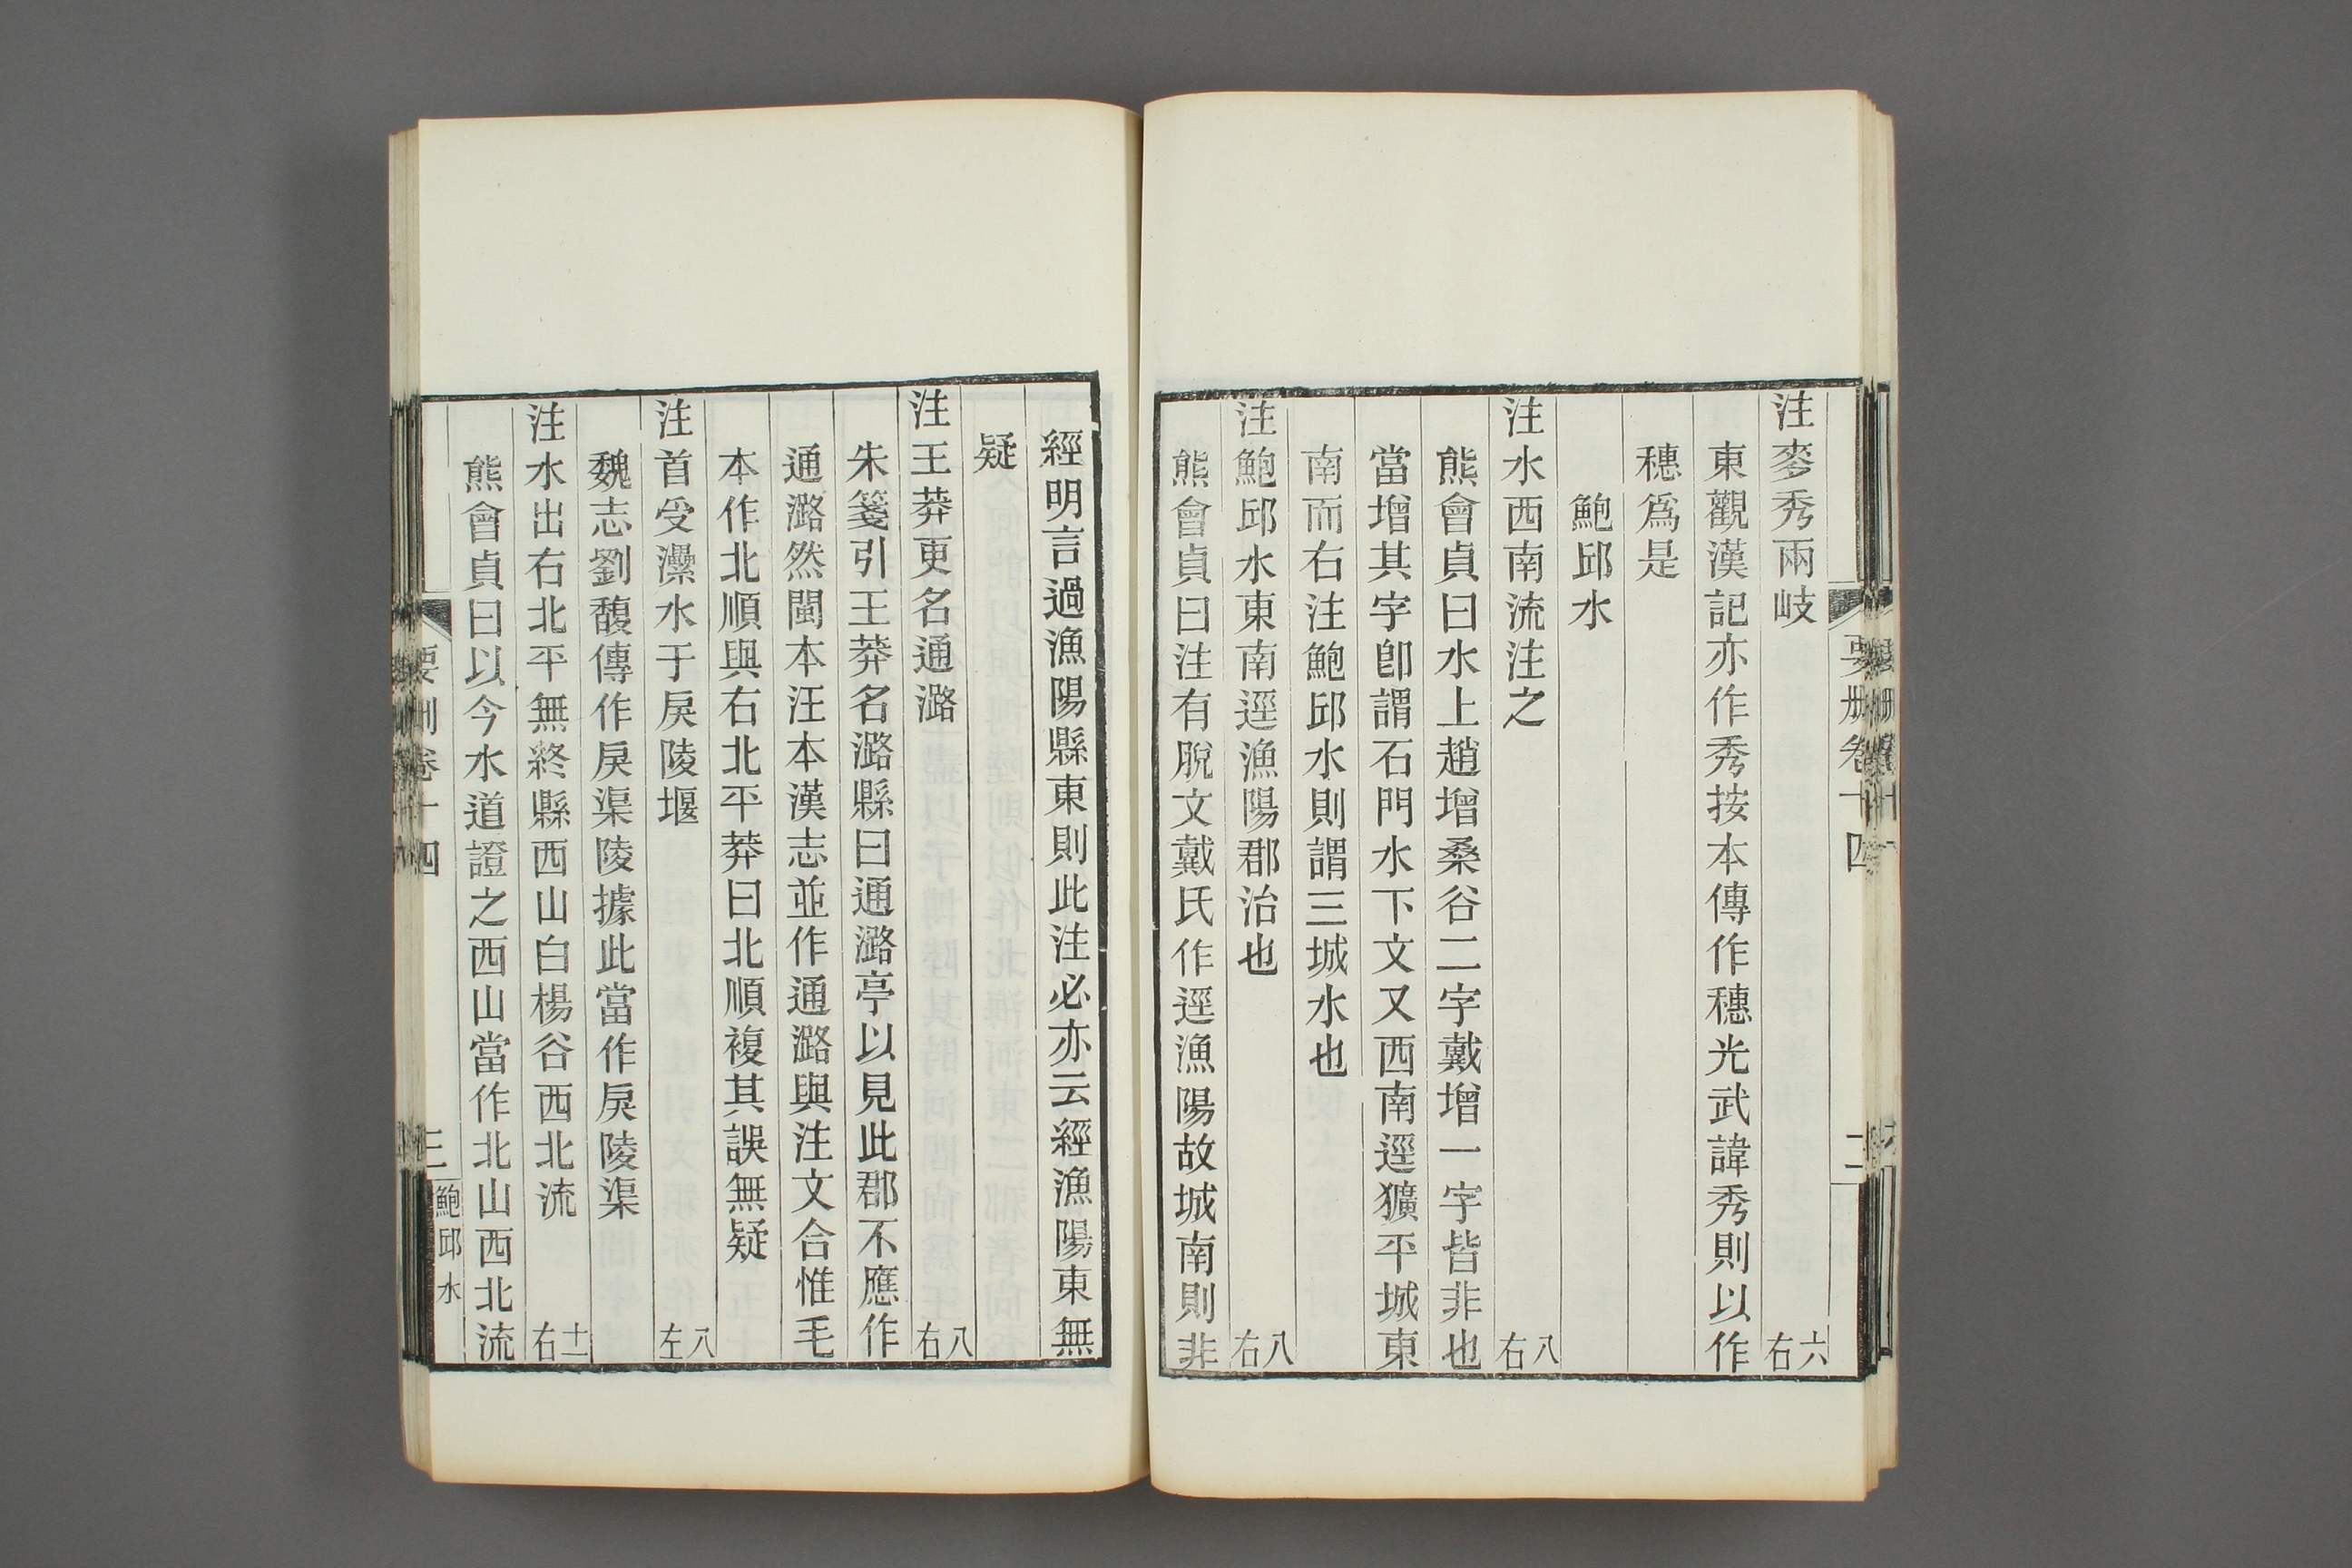 要刪卷十四
二
注麥秀兩岐
六右
東觀漢記亦作秀按本傳作穗光武諱秀則以作
穗爲是
鮑邱水
注水西南流注之
八右
熊會貞曰水上趙增桑谷二字戴增一字皆非也
當增其字卽謂石門水下文又西南逕獷平城東
南而右注鮑邱水則謂三城水也
注鮑邱水東南逕漁陽郡治也
八右
熊會貞曰注有脫文戴氏作逕漁陽故城南則非
經明言過漁陽縣東則此注必亦云經漁陽東無
疑
注王莽更名通潞
八右
朱箋引王莽名潞縣曰通潞亭以見此郡不應作
通潞然閩本汪本漢志並作通潞與注文合惟毛
本作北順與右北平莽曰北順複其誤無疑
注首受灅水于戾陵堰
八左
魏志劉馥傳作戾渠陵據此當作戾陵渠
注水出右北平無終縣西山白楊谷西北流
十一右
熊會貞曰以今水道證之西山當作北山西北流
要刪卷十四
三
鮑邱水